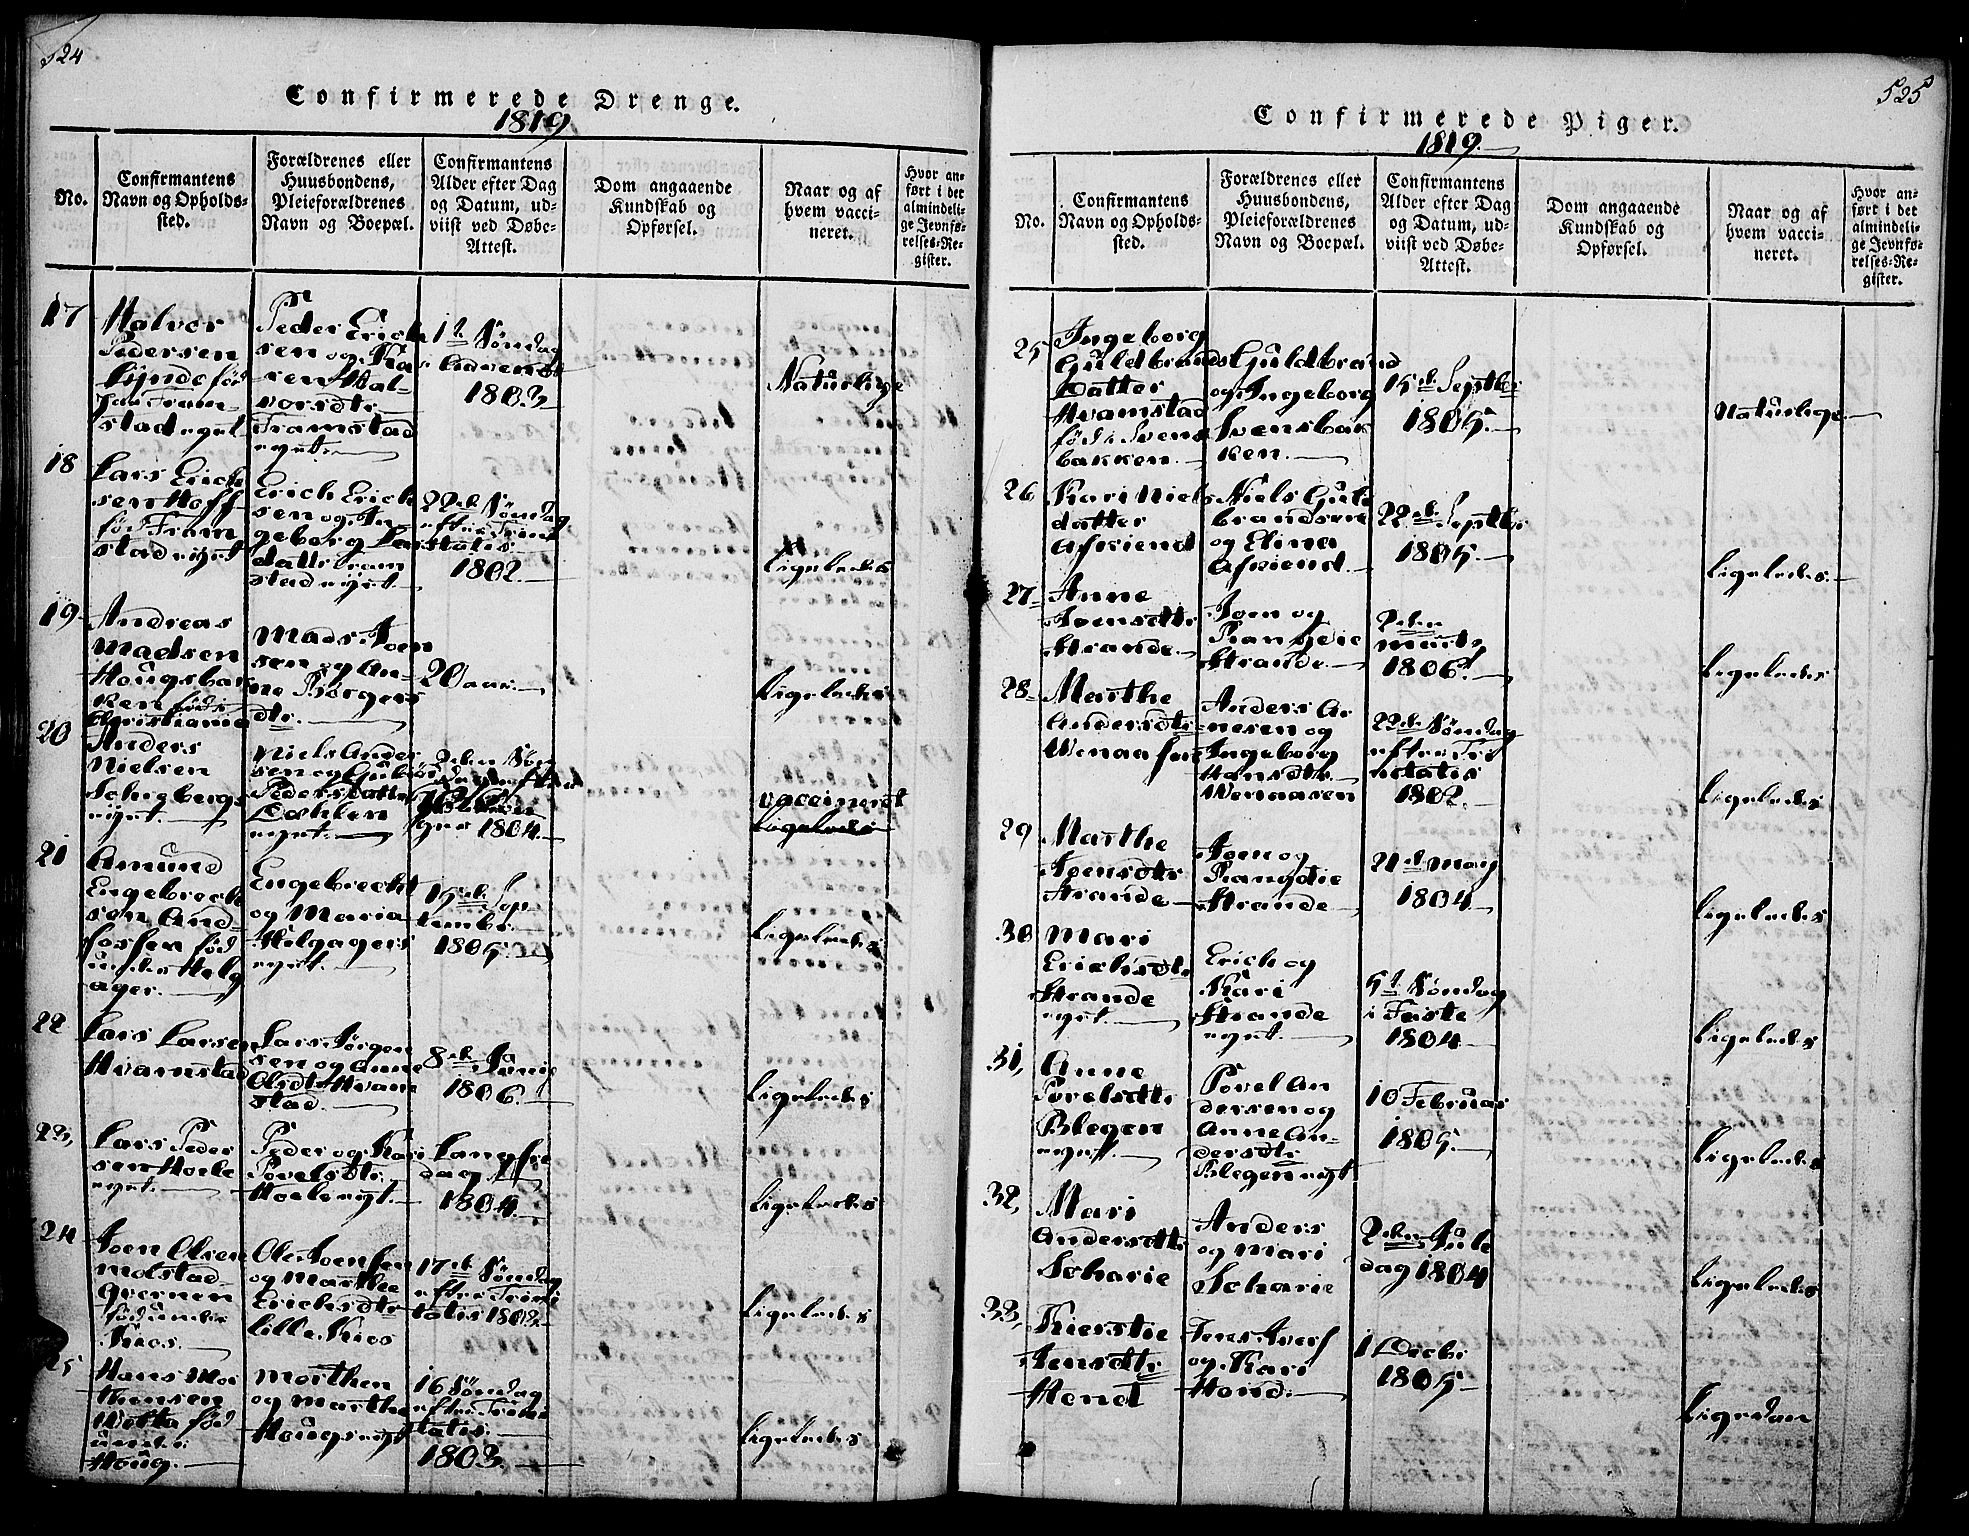 524
Confirmerede Drenge.
1819
No.
Confirmantens
Navn og Opholds-
sted.
Forældrenes eller
Huusbondens,
Pleieforældrenes
Navn og Boepæl.
Confirmantens
Alder efter Dag
og Datum, ud-
viist ved Døbe-
Attest.
Dom angaaende
Kundskab og
Opførsel.
Naar og af
hvem vacci-
neret.
Hvor an-
ført i det
almindeli-
ge Jevnfø-
relses-Re-
gister.
17
Halvor
Pedersen
Lynde fød
Tram-
stad eyet
Peder Erich
sen og Ka
ren Hal-
vorsdtr
Tramstad
eyet.
1ste Søndag
Advent
1803
Naturlige
18
Lars Erich
sen Hoff
fød Tram
stad eyet
Erich Erich
sen og In-
geborg Lars
datter Tram
stad eyet.
22de Søndag
efter Trini
tatis
1802.
Ligeledes
19
Andreas
Madsen
Hougsbak
ken fød i
Christiania
Mads Joen
sen og An-
ne Børgers
dtr.
20 aar.
Ligeledes
20
Anders
Nielsen
Schieberg
eyet.
Niels Ander
sen og
Pedersdatter
Dæhlen
eyet.
2den Søn
1804.
vaccineret
Ligeledes
21
Amund
Engebrecht
sen And
fossen fød
under Helg
ager.
Engebrecht
og Maria
Helgagers
eyet.
15de Sep
tember
1805
Ligeledes
22
Lars Larsen
Hvamstad
Lars Jørgen
sen og Anne
Olsdtr Hvam
stad.
8de Junij
1806.
Ligeledes
23,
Lars Peder
sen Hoele
eyet.
Peder og Kari
Povelsdtr
Hoele eyt.
Langfre
dag
1804.
Ligeledes
24
Joen Olsen
Molstad-
qvernen
fød under
Kios.
Ole Joensen
og Marthe
Erichsdtr
Lille Kios
17de Søndag
efter Trini
tatis 1803.
Ligeledes
25
Hans Mor
thensen
Wetta fød
under
Houg.
Morthen
og Marthe
Hougs eyet
16 Søndag
efter Trini
tatis.
1803.
Ligeledes
525
Confirmerede Piger.
1819.
No.
Confirmantens
Navn og Opholds-
sted.
Forældrenes eller
Huusbondens,
Pleieforældrenes
Navn og Boepæl.
Confirmantens
Alder efter Dag
og Datum, ud-
viist ved Døbe-
Attest.
Dom angaaende
Kundskab og
Opførsel.
Naar og af
hvem vacci-
neret.
Hvor an-
ført i det
almindeli-
ge Jevnfø-
relses-Re-
gister.
25
Ingeborg
Guldbrands
Datter
Hvamstad
fød i Svens
bakken.
Guldbrand
og Ingeborg
Svensbak
ken.
15de Septbr
1805.
Naturlige.
26
Kari Niels
datter
Afkiend
Niels Gul
brandsen
og Elina
Afkiend.
22de Septbr
1805.
Ligeledes.
27
Anne
Joensdtr
Strande.
Joen og
Rangdie
Strande.
2den
Marts
1806.
Ligeledes
28
Marthe
Andersdtr
Wenaasen
Anders Ar
nesen og
Ingeborg
Hansdtr
Wenaasen
22de Søndag
efter Tri
nitatis
1802.
Ligeledes
29
Marthe
Joensdtr
Strande
Joen og
Rangdie
Strande
21de May
1804
Ligeledes
30
Mari
Erichsdtr
Strande
eyet.
Erich og
Kari
Strande
eyet.
5te Søndag
i Faste
1804
Ligeledes
31,
Anne
Povelsdtr
Blegen
eyet.
Povel An
dersen og
Anne An-
dersdtr
Blegen eyt
10 Februar
1805.
Ligeledes
32,
Mari
Andersdtr
Scharie
Anders
og Mari
Scharie
2den Jule
dag 1804
Ligeledes
33,
Kierstie
Jensdtr
Hend
Jens Ivers
og Kari
Hend.
1 Decbr
1805
Ligedan